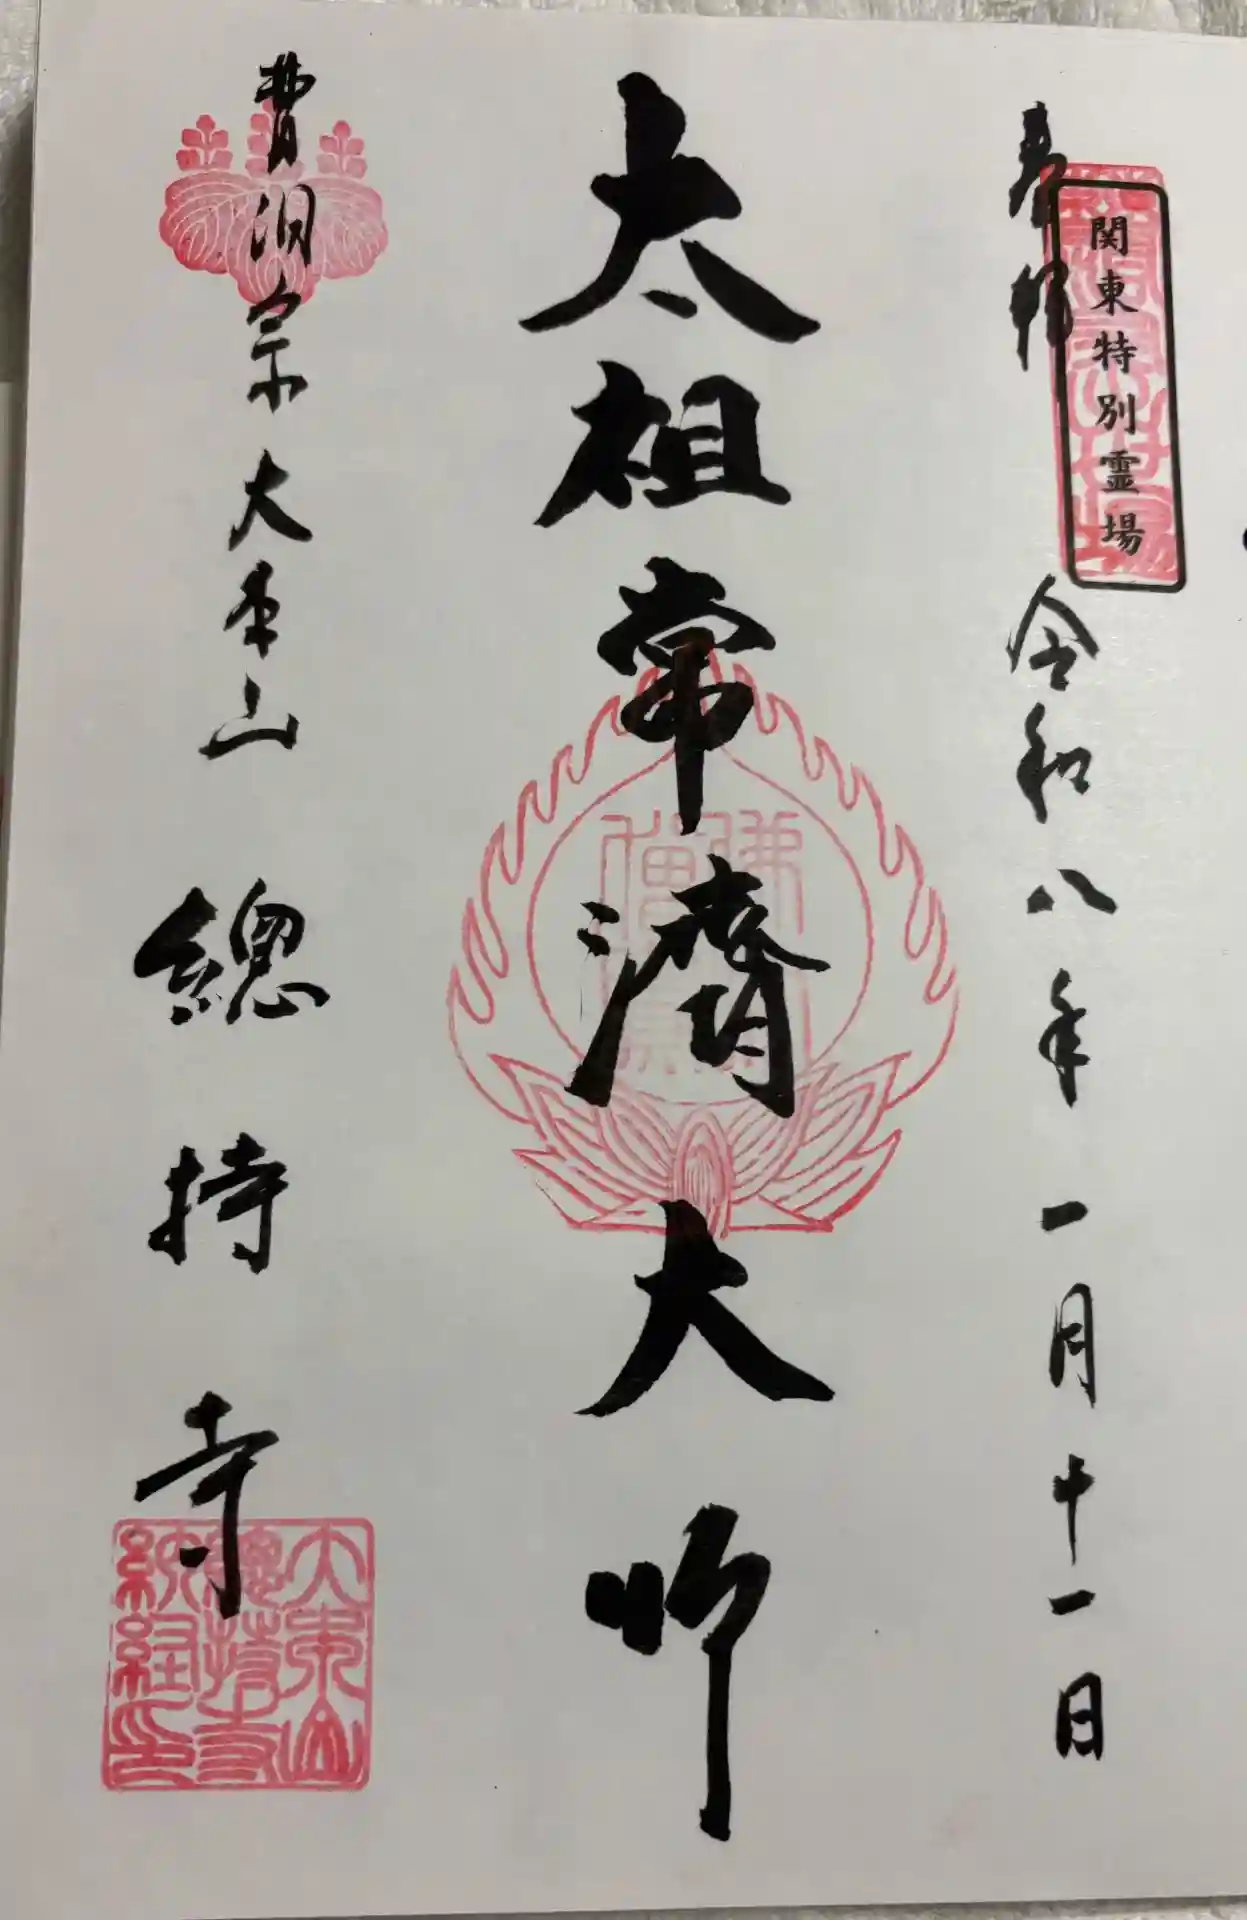 奉拝
関東特別霊場
令和八年一月十一日
太祖常濟大師
佛
僧
曹洞宗大本山
總持寺
大本山
總持寺
納経印